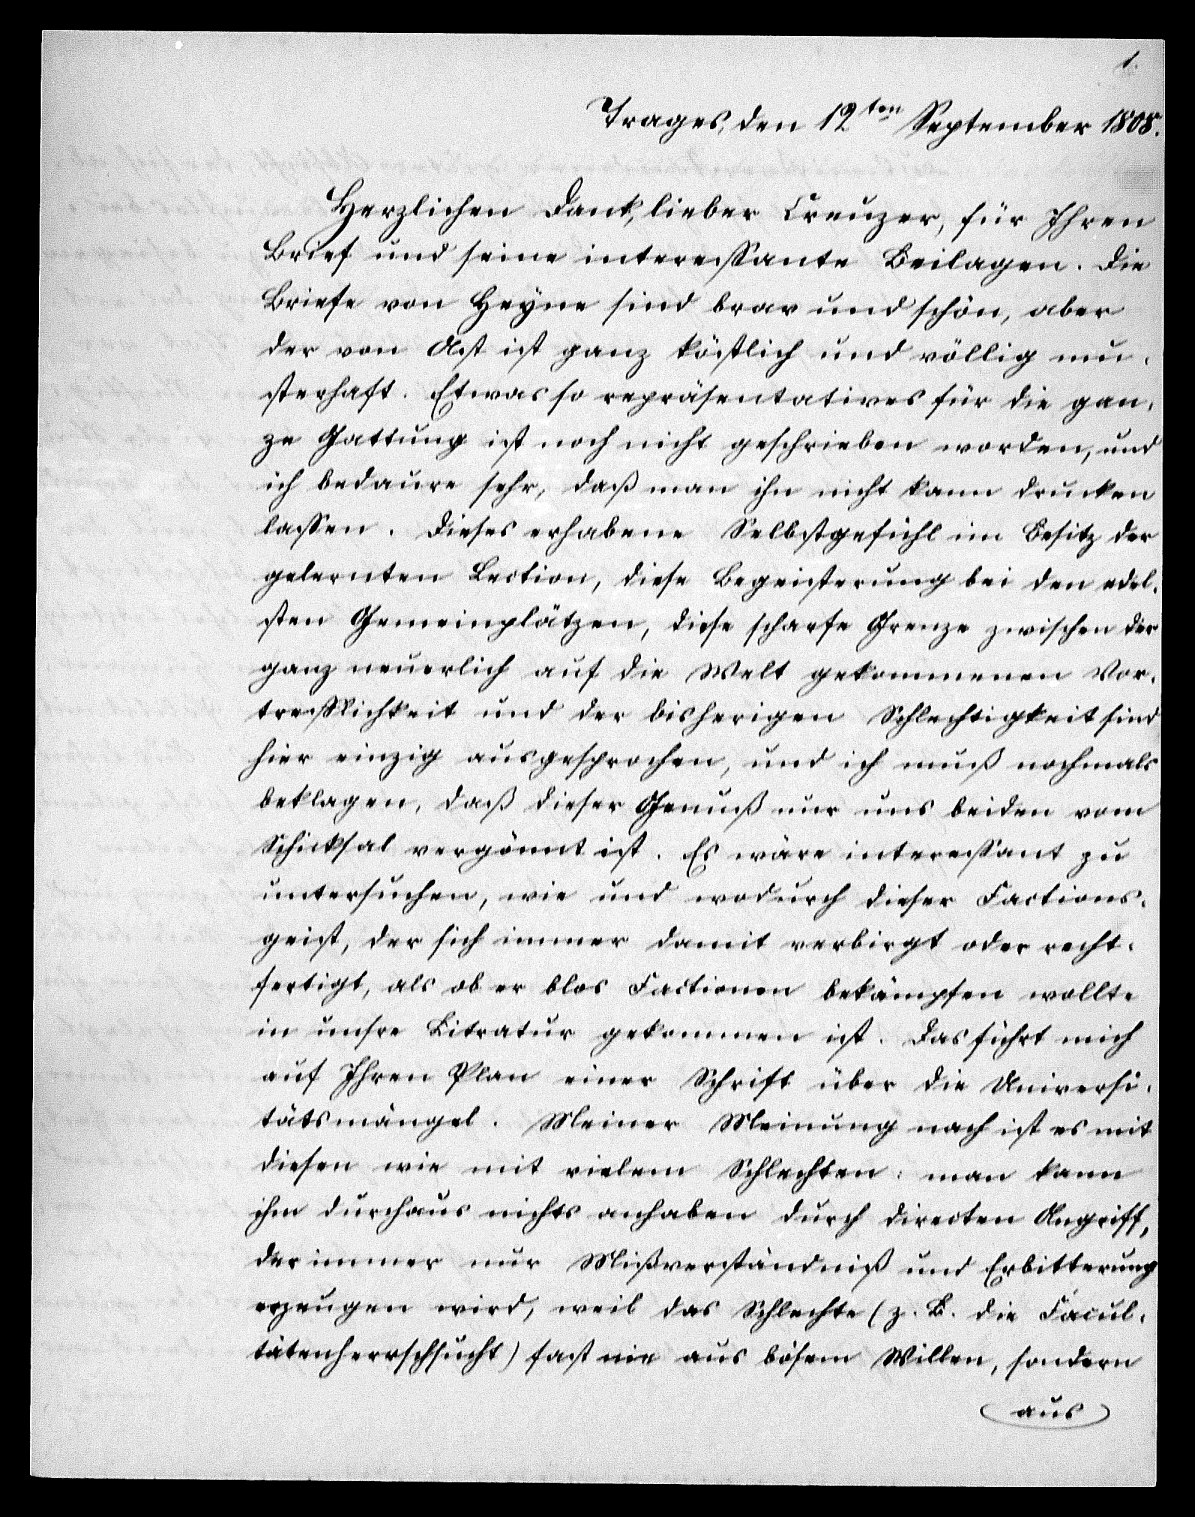 1.
Trages, den 12ten September 1808.
Herzlichen Dank, lieber Creuzer, für Ihren
Brief und seine interessante Beilagen. Die
Briefe von Heyne sind brav und schön, aber
der von Ast ist ganz köstlich und völlig mu-
sterhaft. Etwas so repräsentatives für die gan-
ze Gattung ist noch nicht geschrieben worden, und
ich bedaure sehr, daß man ihn nicht kann drucken
lassen. Dieses erhabene Selbstgefühl im Besitz der
gelernten Lection, diese Begeisterung bei den edel-
sten Gemeinplätzen, diese scharfe Grenze zwischen der
ganz neuerlich auf die Welt gekommenen Vor-
trefflichkeit und der bisherigen Schlechtigkeit sind
hier einzig ausgesprochen, und ich muß nochmals
beklagen, daß dieser Genuß nur uns beiden vom
Schicksal vergönnt ist. Es wäre interessant zu
untersuchen, wie und wodurch dieser Factions-
geist, der sich immer damit verbirgt oder recht-
fertigt, als ob er blos Factionen bekämpfen wollte
in unsre Litratur gekommen ist. Das führt mich
auf Ihren Plan einer Schrift über die Universi-
tätsmängel. Meiner Meinung nach ist es mit
diesen wie mit vielem Schlechten: man kann
ihm durchaus nichts anhaben durch directen Angriff,
der immer nur Mißverständniß und Erbitterung
erzeugen wird, weil das Schlechte (z. B. die Facul-
tätenherrschsucht) fast nie aus bösem Willen, sondern
aus